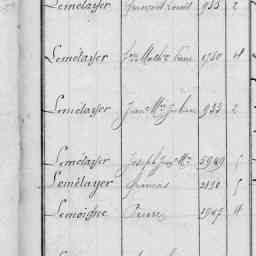 Lemétayer François Louis 933 2
Lemétayer 1750 4
Lemétayer Jean Mie Julien 933 2
Lemétayer Joseph Jean Mie 5989
Lemétayer François 2130 5
Lemoisne Pierre 1947 4